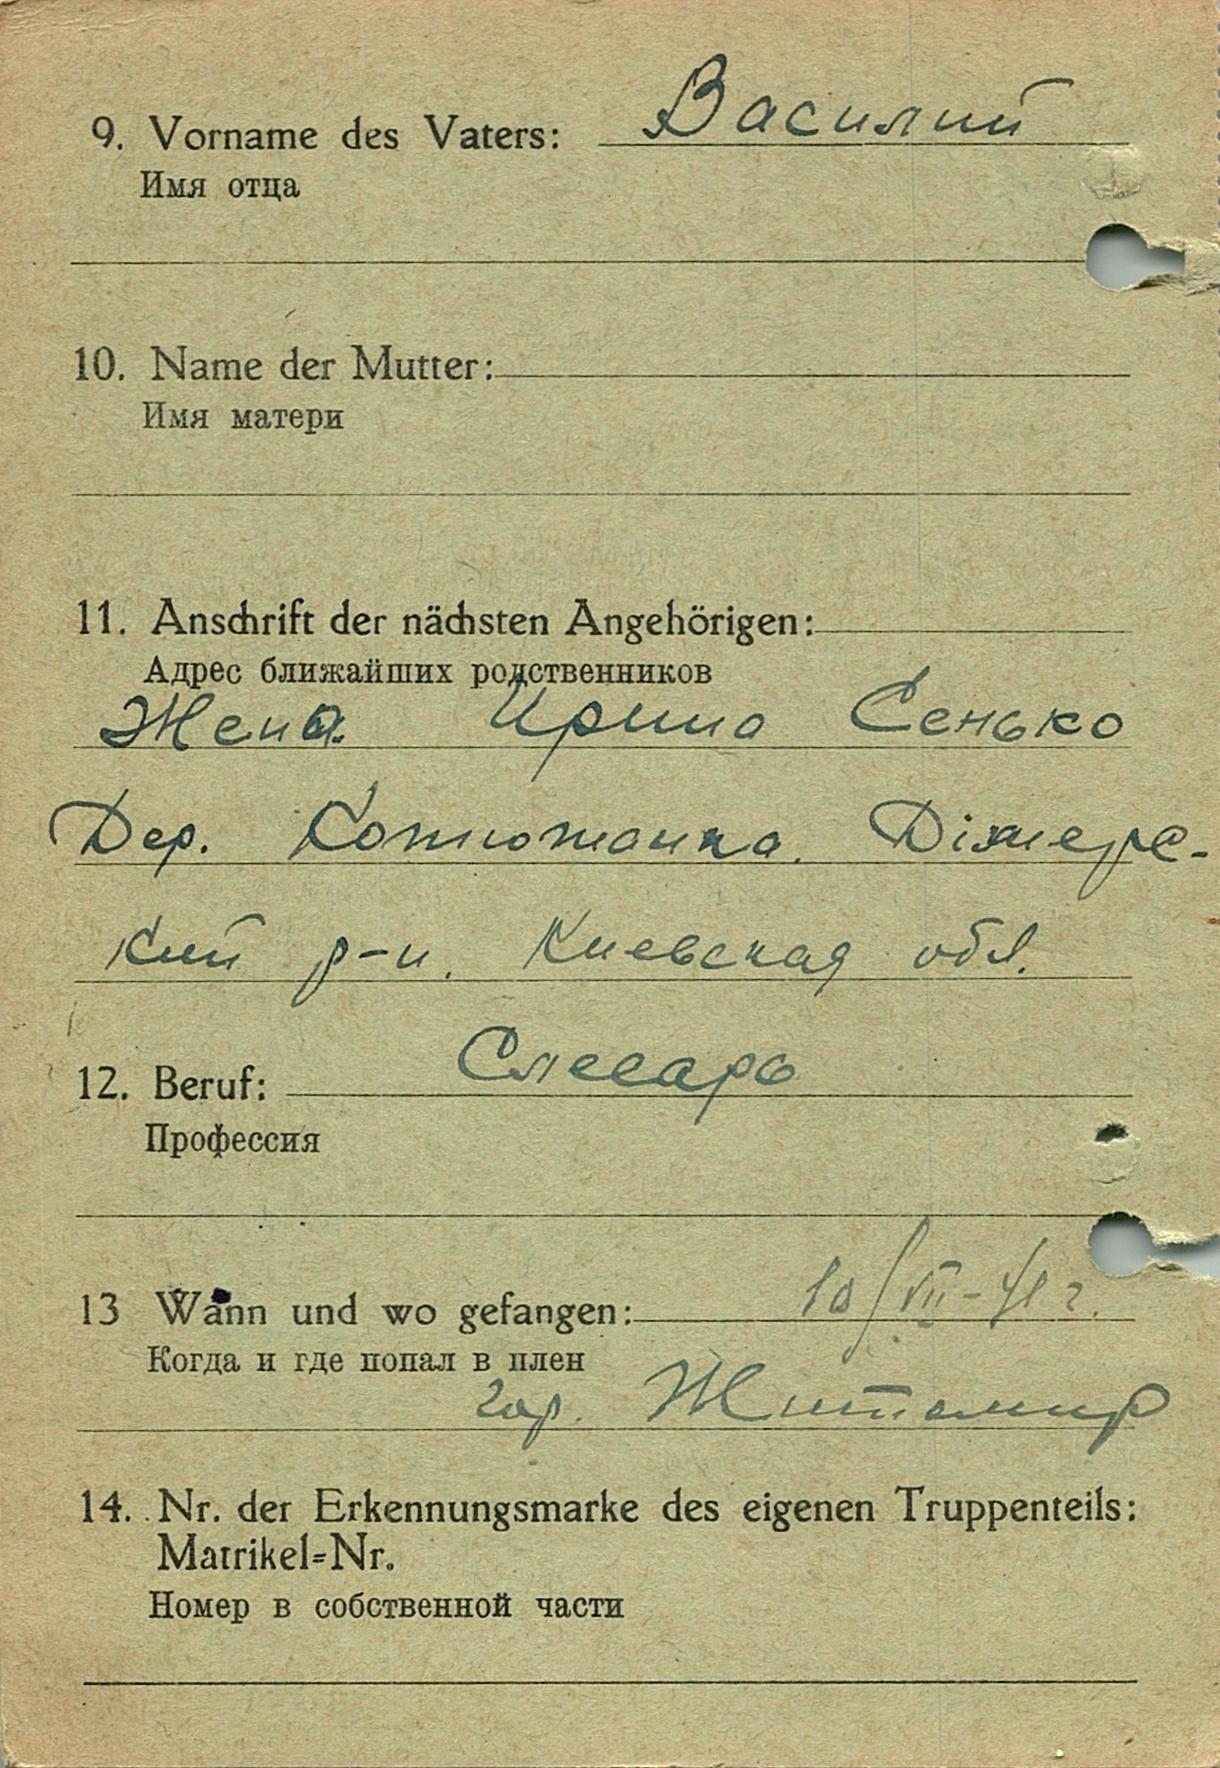 9. Vorname des Vaters: Василий
Имя отца
10. Name der Mutter:
Имя матери
11. Anschrift der nächsten Angehörigen:
Адрес ближайших родственников
Жена Ирина Сенько
Дер. Котютанка. Дімерс-
кий р-н. Киевская обл.
12. Beruf: Слесарь
Профессия
13 Wann und wo gefangen: 10/VII-41 г.
Когда и где попал в плен
гор. Житомир
14. Nr. der Erkennungsmarke des eigenen Truppenteils:
Matrikel=Nr.
Номер в собственной части